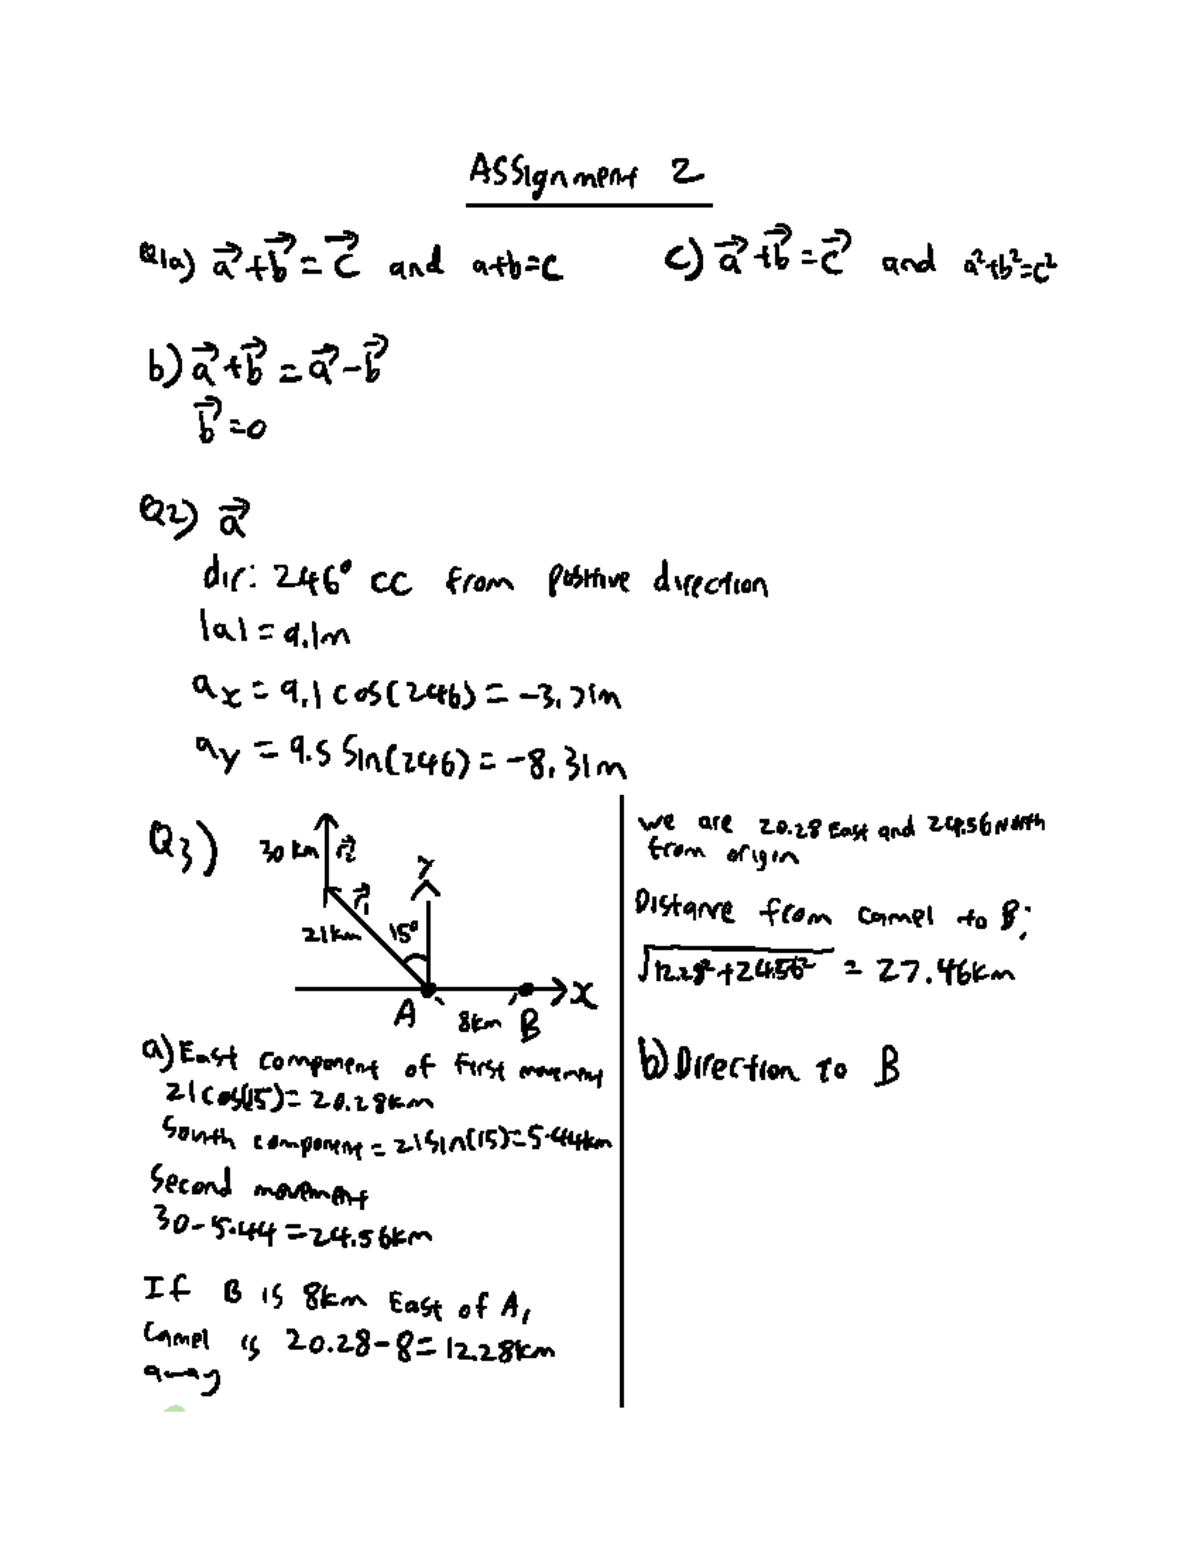 Assignment 2
Q1a) a⃗+b⃗=c⃗ and a+b=c
c) a⃗+b⃗=c⃗ and a²+b²=c²
b) a⃗+b⃗=a⃗-b⃗
b⃗=0
Q2) a⃗
dir: 246° CC from positive direction
|a|=9.1m
ax = 9.1cos(246) = -3.71m
ay = 9.5 Sin(246) = -8.31m
Q3)
30 km r⃗2
y
r⃗1
21km 15°
x
A 8km B
a) East component of first movement
21cos(15)=20.28km
South component = 21Sin(15)=5.44km
Second movement
30-5.44=24.56km
If B is 8km East of A,
Camel is 20.28-8=12.28km
away
we are 20.28 East and 24.56 North
from origin
Distance from camel to B:
√12.28²+24.56² = 27.46km
b) Direction to B